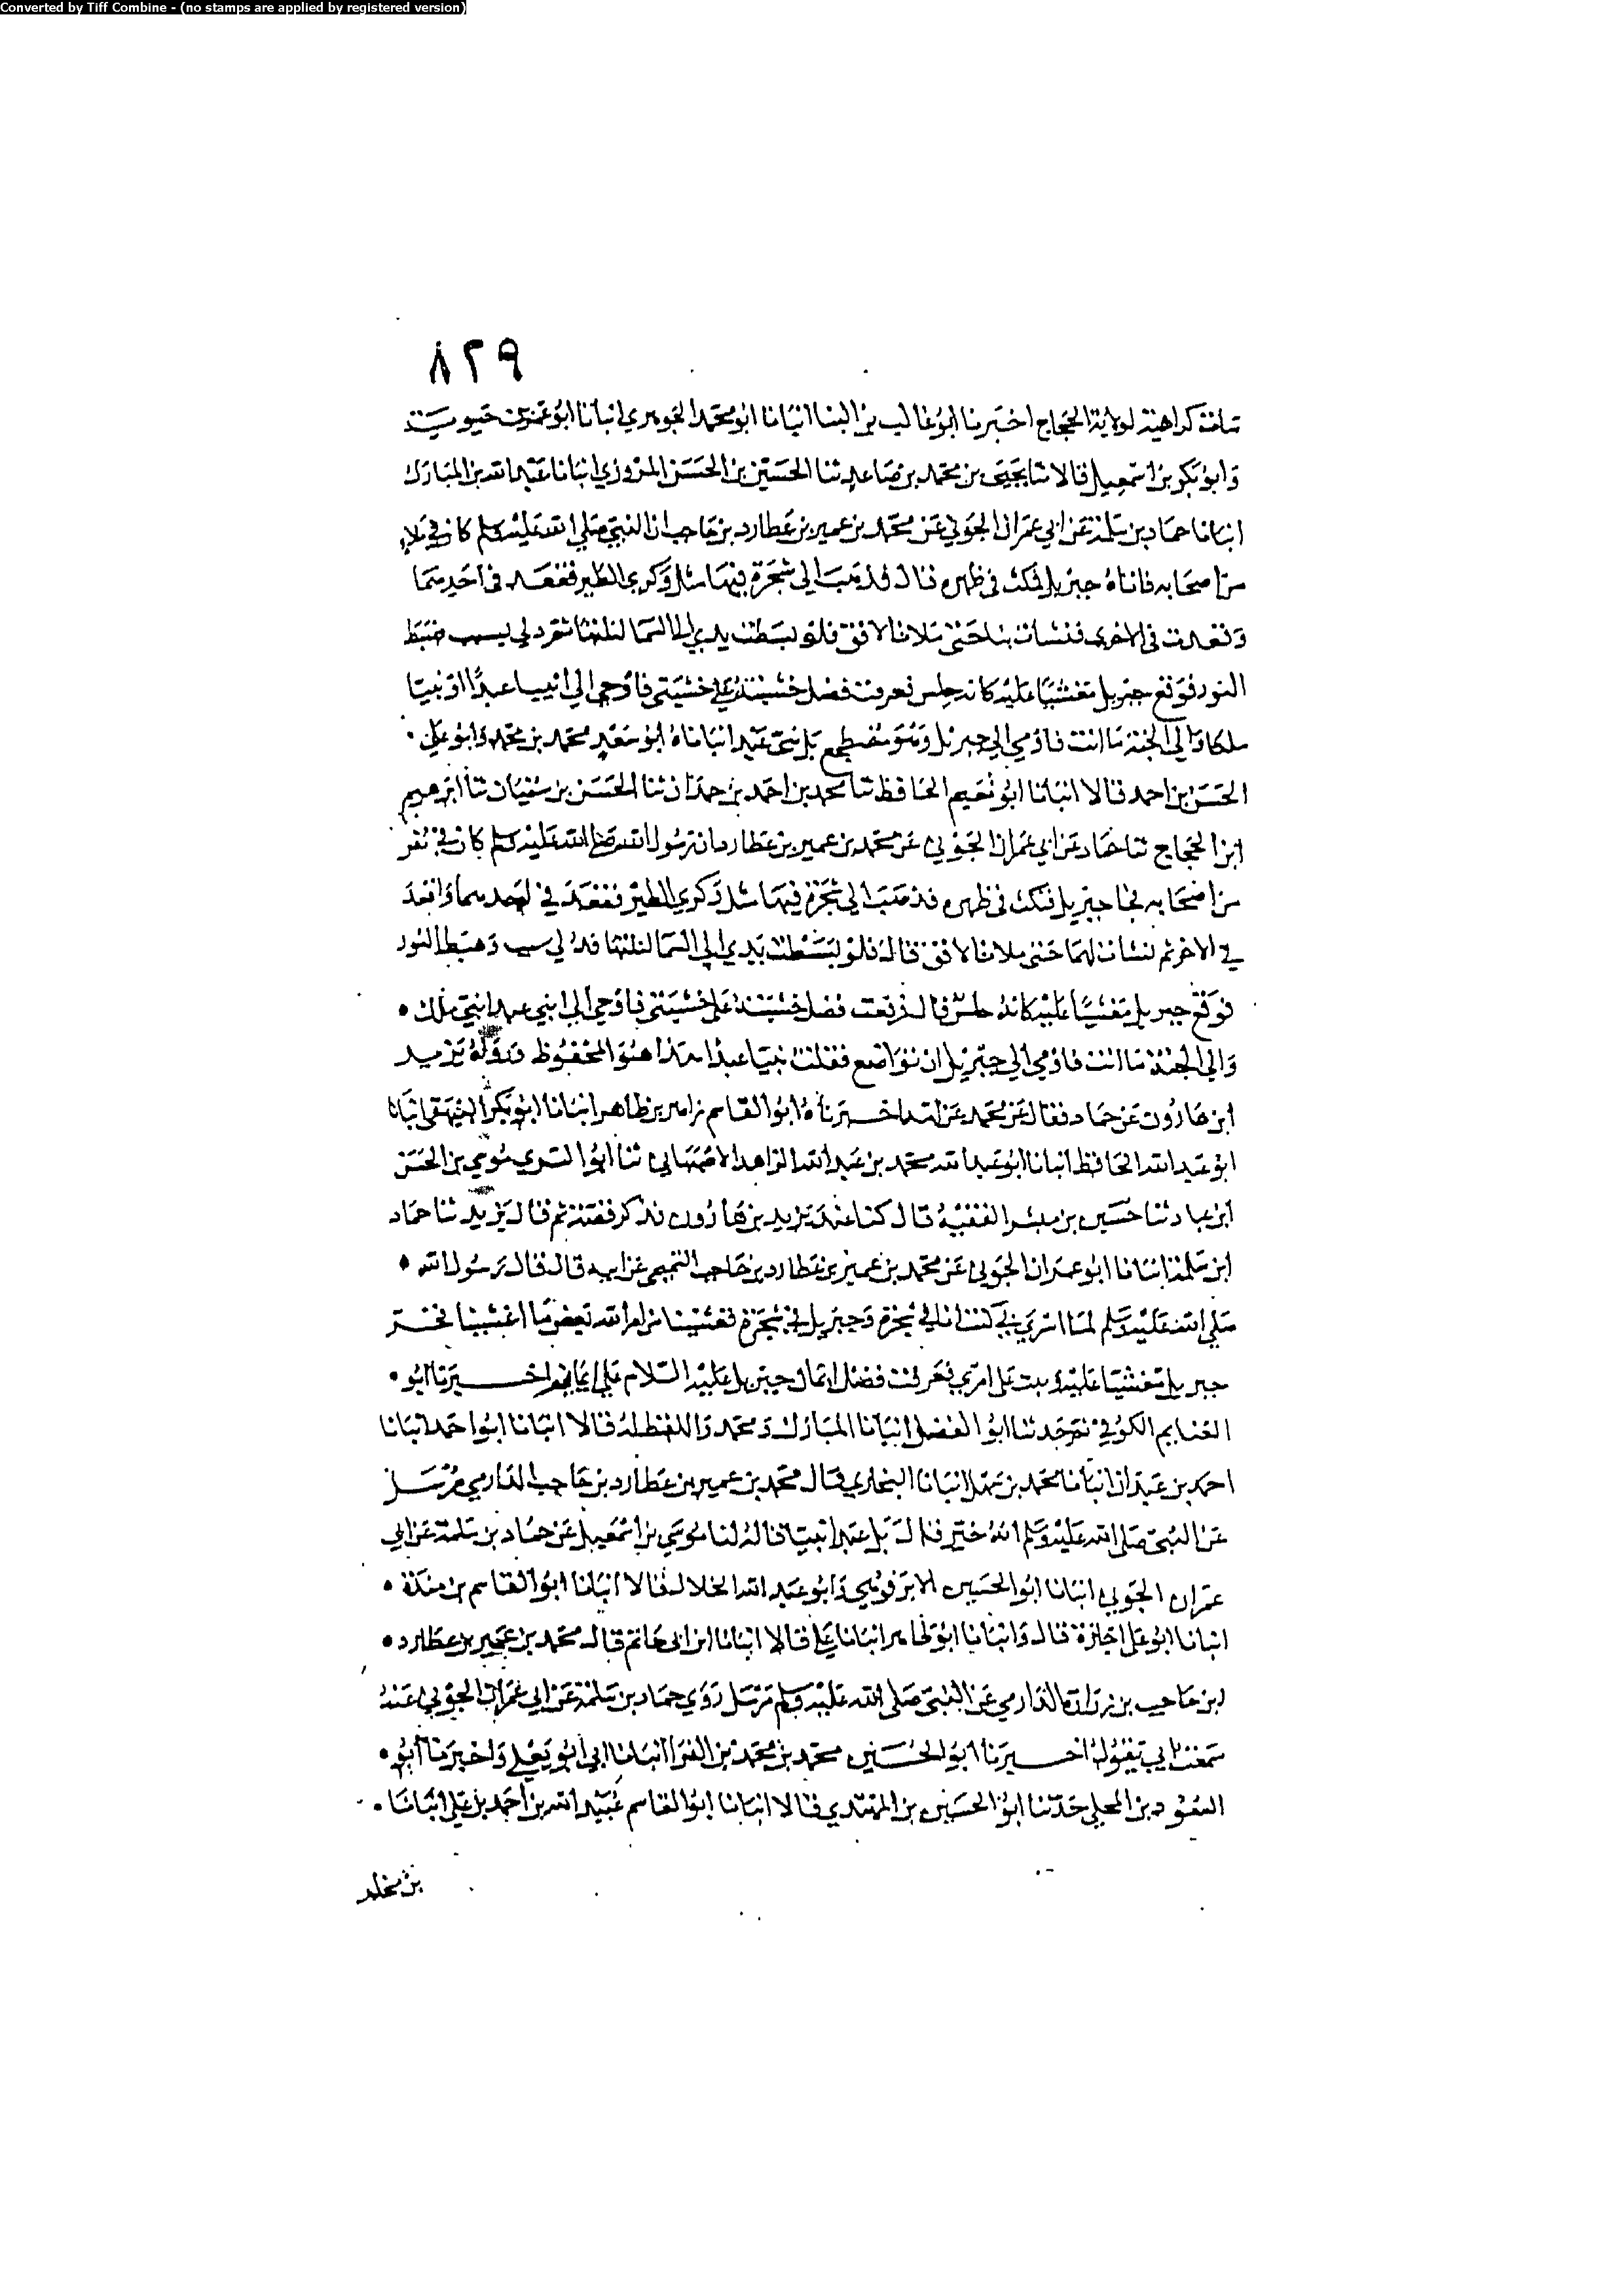 Converted by Tiff Combine - (no stamps are applied by registered version)
٨٢٩
كراهية لولاية الحجاج اخبرنا ابو غالب بن البنا انبانا ابو محمد الجوهري انبانا ابو عمر بن حيويه
وابو بكر بن اسمعيل قالا ثنا يحيى بن محمد بن صاعد ثنا الحسين بن الحسن المروزي انبانا عبد الله بن المبارك
انبانا حماد بن سلمة عن ابي عمران الجوني عن محمد بن عمير بن عطارد بن حاجب ان النبي صلى الله عليه وسلم كان في ملا
من اصحابه فاتاه جبريل فنكت في ظهره قال فذهب الى شجرة فيها مثل وكري الطير فقعد في احدهما
وقعدت في الاخرى فنشات بنا حتى ملات الافق فلو بسطت يدي الى السما لنلتها ثم دلي بسبب فهبط
النور فوقع جبريل مغشيا عليه كانه حلس فعرفت فضل خشيته على خشيتي فاوحى الي انبيا عبدا او نبيا
ملكا والى الجنة ما انت فاومى الي جبريل وهو مضطجع بل نبي عبد انباناه ابو سعد محمد بن محمد وابو علي
الحسن بن احمد قالا انبانا ابو نعيم الحافظ ثنا محمد بن احمد بن حمدان ثنا الحسن بن سفيان ثنا ابرهيم
ابن الحجاج ثنا حماد عن ابي عمران الجوني عن محمد بن عمير بن عطارد ان رسول الله صلى الله عليه وسلم كان في نفر
من اصحابه فجا جبريل فنكت في ظهره فذهب الى شجرة فيها مثل وكري الطير فقعد في احدهما واقعد
في الاخر ثم نشات لهما حتى ملات الافق قال فلو بسطت يدي الى السما لنلتها فدلي سبب وهبط النور
فوقع جبريل مغشيا عليه كانه حلس قال فعرفت فضل خشيته على خشيتي فاوحي الي انبي عبد ام نبي ملك
والى الجنة ما انت فاومى الي جبريل ان تواضع فقلت نبيا عبدا هذا هو المحفوظ ورواه يزيد
ابن هارون عن حماد فقال عن محمد عن ابيه اخبرناه ابو القاسم زاهر بن طاهر انبانا ابو بكر البيهقي انبانا
ابو عبد الله الحافظ انبانا ابو عبد الله محمد بن عبد الله الزاهد الاصبهاني ثنا ابو السري موسى بن الحسن
ابن عباد ثنا حسين بن مبشر الفقيه قال كنا عند يزيد بن هارون فذكر قصة ثم قال يزيد ثنا حماد
ابن سلمة انبانا ابو عمران الجوني عن محمد بن عمير بن عطارد بن حاجب التميمي عن ابيه قال قال رسول الله
صلى الله عليه وسلم لما اسري بي كنت انا في شجرة وجبريل في شجرة فغشينا من امر الله بعض ما اغشينا فخر
جبريل مغشيا عليه وثبت على امري فعرفت فضل ايمان جبريل عليه السلام على ايماني اخبرنا ابو
الغنايم الكوفي ثم حدثنا ابو الفضل انبانا المبارك ومحمد واللفظ له قالا انبانا ابو احمد انبانا
احمد بن عبدان انبانا محمد بن سهل انبانا البخاري قال محمد بن عمير بن عطارد بن حاجب الدارمي مرسل
عن النبي صلى الله عليه وسلم انه خير فقال بل عبد نبيا قاله لنا موسى بن اسمعيل عن حماد بن سلمة عن ابي
عمران الجوني انبانا ابو الحسين الابرقوهي وابو عبد الله الخلال قالا انبانا ابو القاسم بن مندة
انبانا ابو علي اجازة قال وانبانا ابو طاهر انبانا علي قالا انبانا ابن ابي حاتم قال محمد بن عمير بن عطارد
ابن حاجب بن زرارة الدارمي عن النبي صلى الله عليه وسلم مرسل روى حماد بن سلمة عن ابي عمران الجوني عنه
سمعت ابي يقوله اخبرنا ابو الحسين محمد بن محمد بن الفرا انبانا ابي ابو يعلى واخبرنا ابو
السعود بن المجلي حدثنا ابو الحسين بن المهتدي قالا انبانا ابو القاسم عبيد الله بن احمد بن علي انبانا
بن مخلد